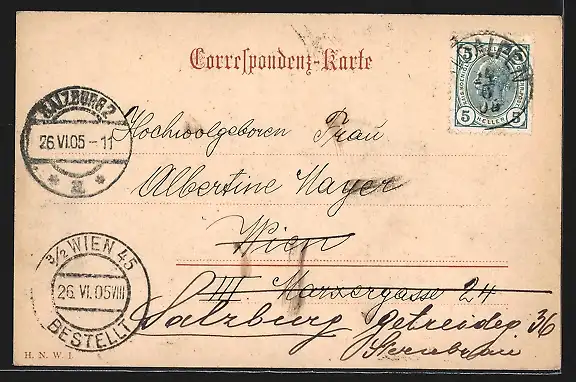 Correspondenz-Karte
5 5
5 HELLER 5
SALZBURG 2
26 VI.05-11
* 2 *
Hochwolgeboren Frau
Albertine Mayer
Wien
III. Marxergasse 24
Salzburg Getreideg 36
3/2 WIEN 45
26. VI. 05 VIII
BESTELLT
H. N. W. I.